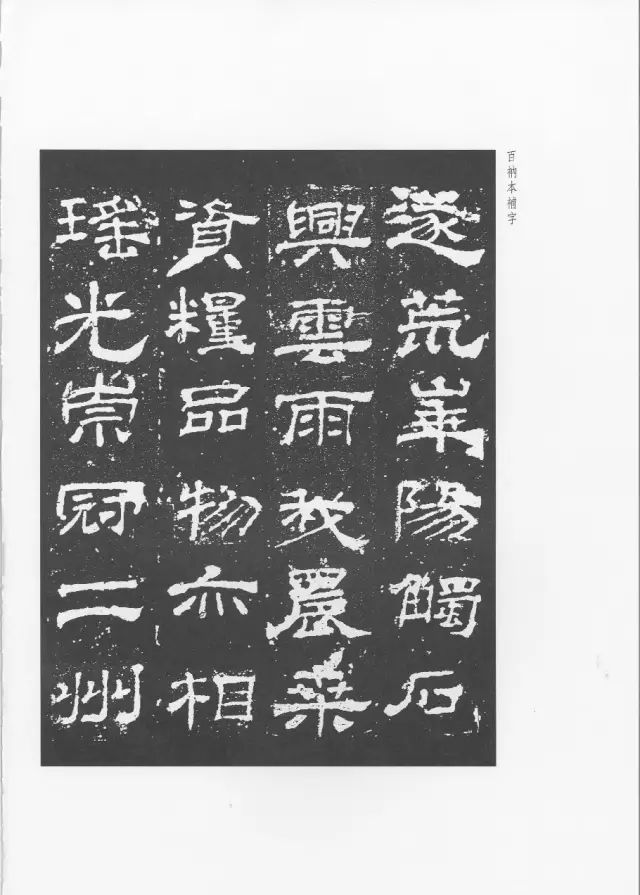 百衲本補字
遂荒崋陽觸石
興雲雨我農桑
資糧品物亦相
瑤光崇冠二州